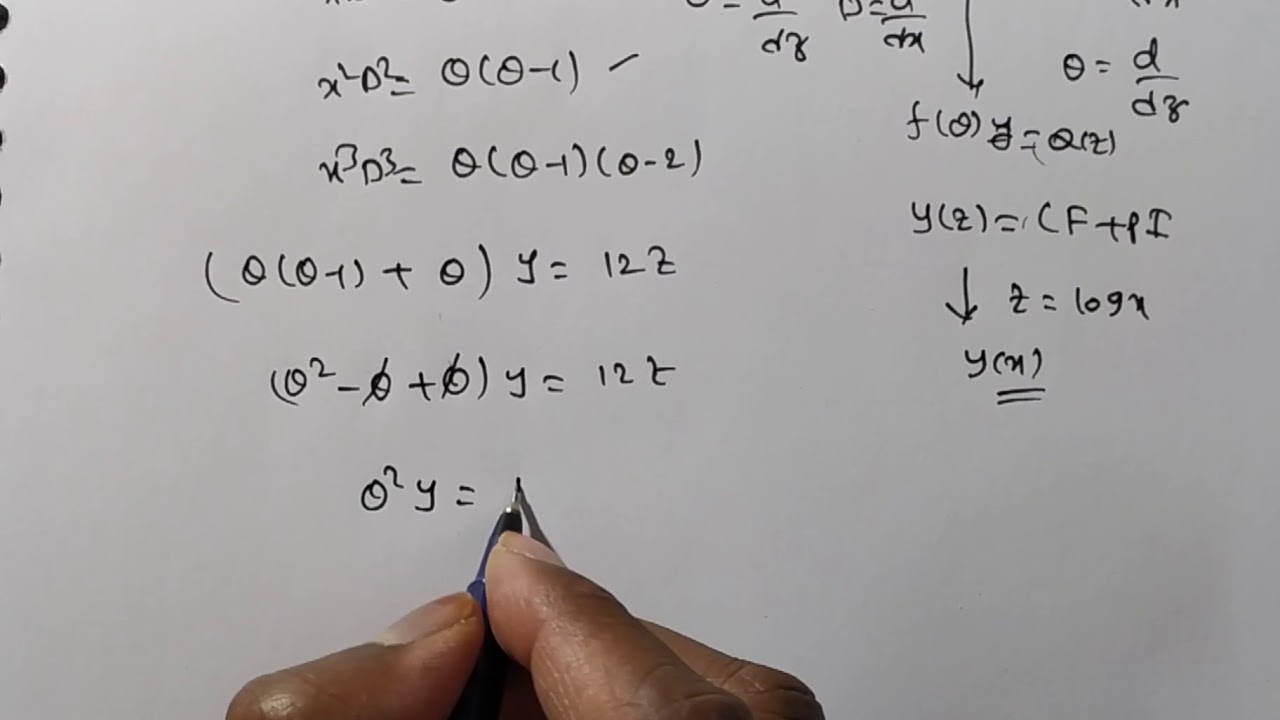 D = d/dx
x²D² = θ(θ-1)
x³D³ = θ(θ-1)(θ-2)
(θ(θ-1) + θ) y = 12z
(θ² - θ + θ) y = 12z
θ² y =
θ = d/dz
f(θ) y = Q(z)
y(z) = CF + PI
↓ z = log x
y(x)